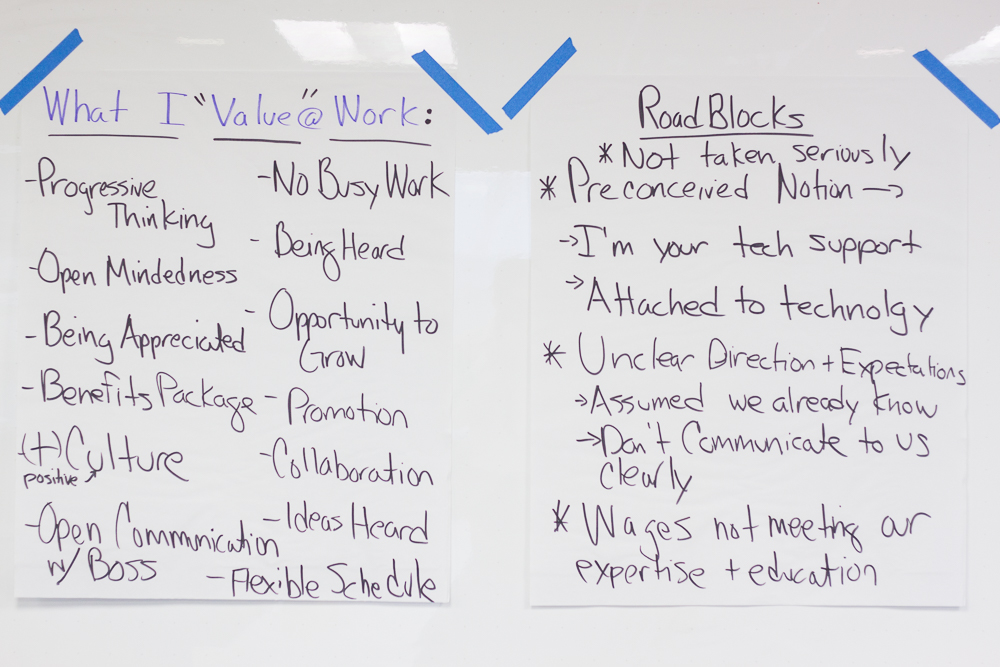 What I "Value" @ Work:
-Progressive
Thinking
-Open Mindedness
-Being Appreciated
-Benefits Package
(+) Culture
positive ↗
-Open Communication
w/ Boss
-No Busy Work
- Being Heard
- Opportunity to
Grow
- Promotion
-Collaboration
-Ideas Heard
-Flexible Schedule
RoadBlocks
*Not taken seriously
* Preconceived Notion →
→I'm your tech support
→Attached to technolgy
* Unclear Direction + Expectations
→Assumed we already know
→Don't Communicate to us
clearly
* Wages not meeting our
expertise + education